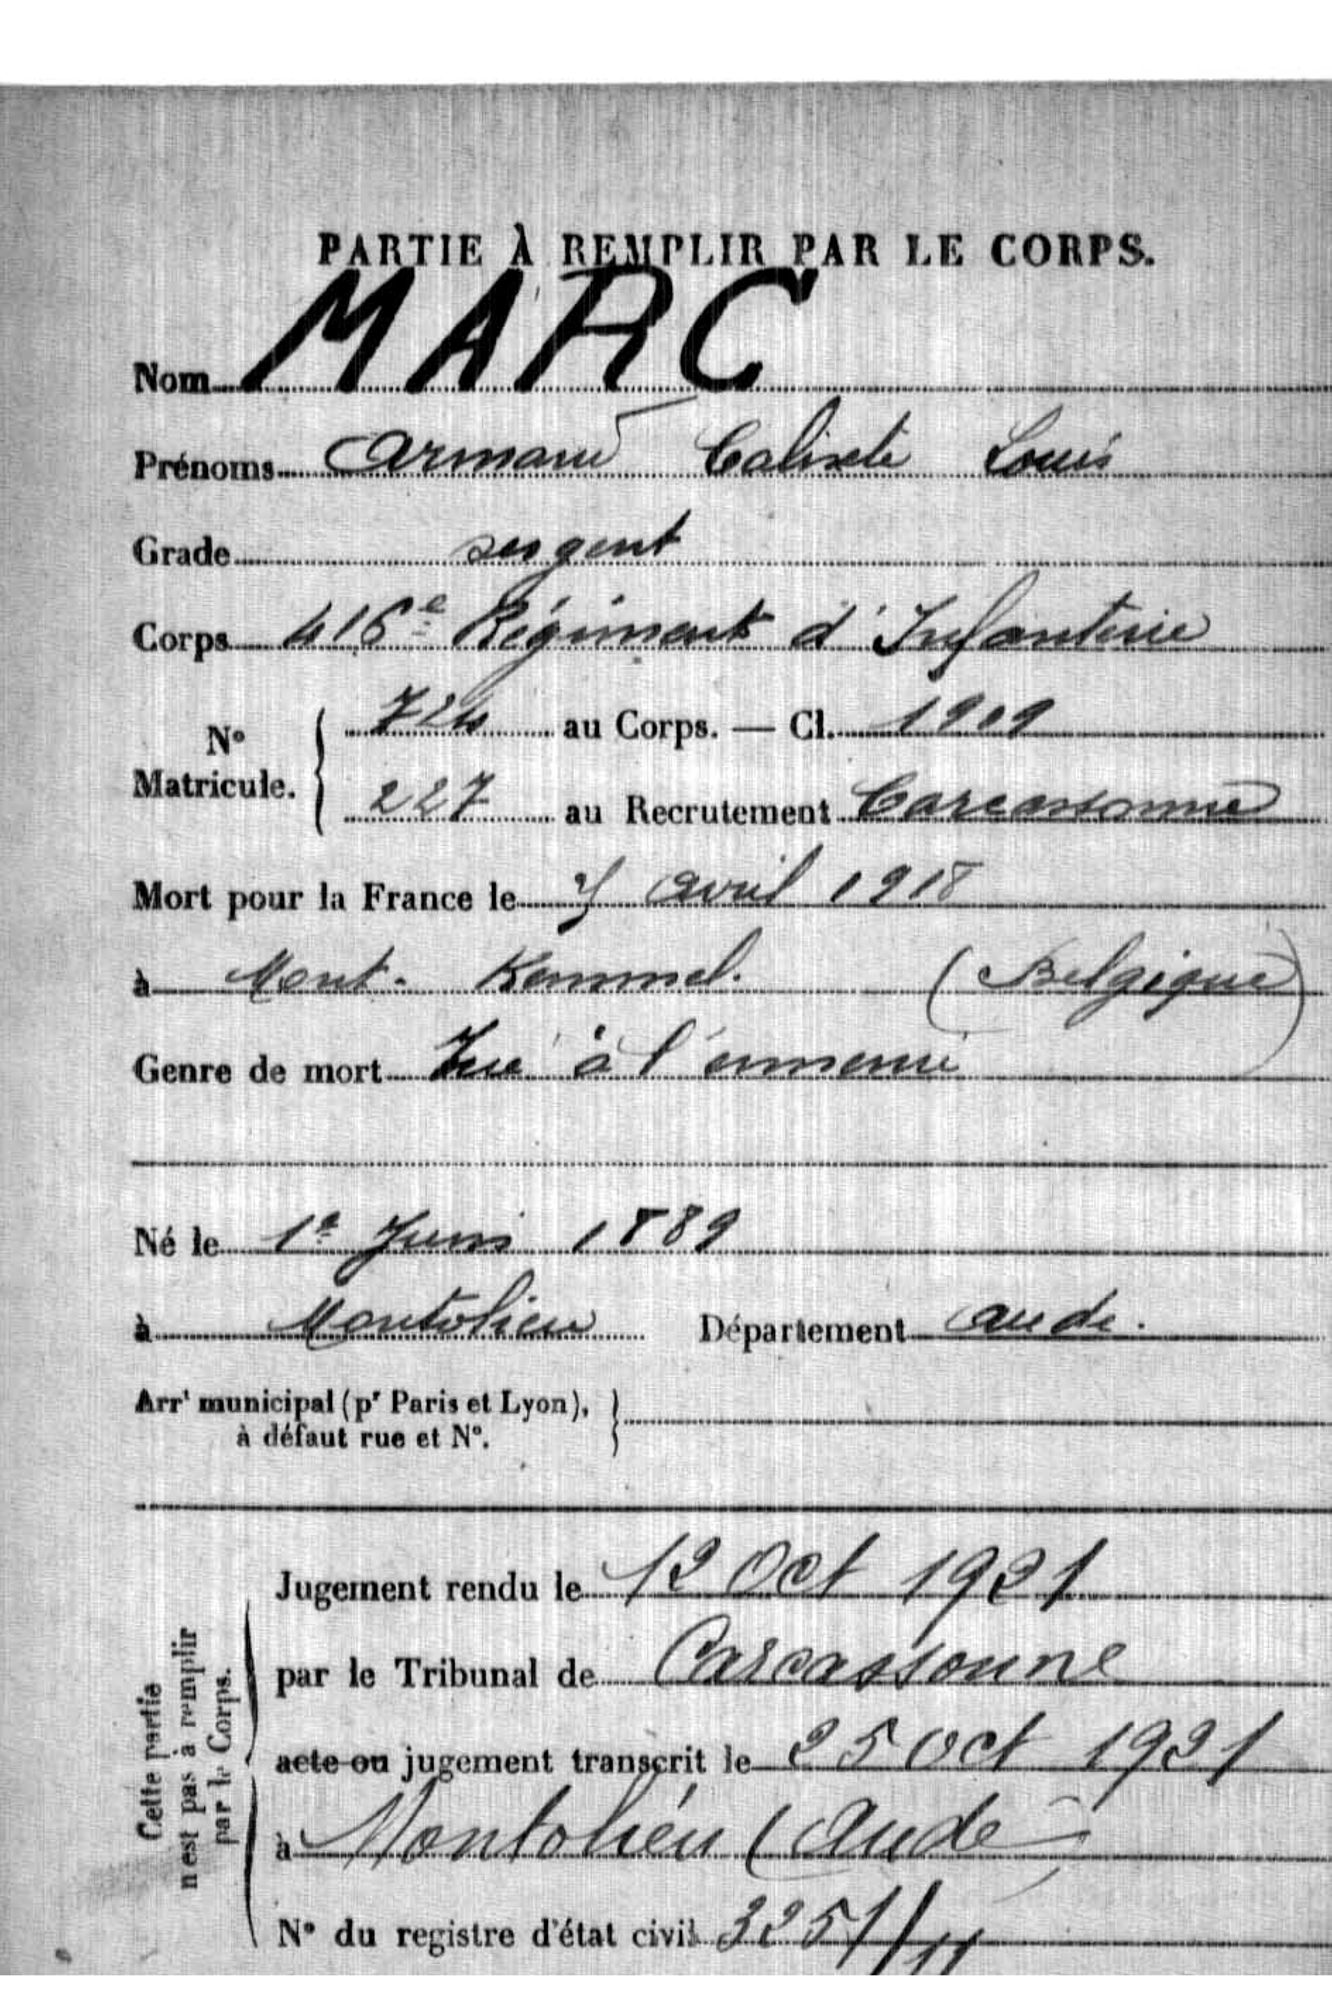 PARTIE À REMPLIR PAR LE CORPS.
Nom MARC
Prénoms Armand Calixte Louis
Grade sergent
Corps 416e Régiment d'Infanterie
No Matricule. { 724 au Corps. — Cl. 1909
227 au Recrutement Carcassonne
Mort pour la France le avril 1918
à Mont-Kemmel. (Belgique)
Genre de mort Tué à l'ennemi
Né le 1er Juin 1889
à Montolieu Département Aude.
Arrt municipal (pr Paris et Lyon), }
à défaut rue et No.
Cette partie
n'est pas à remplir
par le Corps.
Jugement rendu le 12 Oct 1921
par le Tribunal de Carcassonne
acte ou jugement transcrit le 25 Oct 1921
à Montolieu (Aude)
No du registre d'état civil 3251/11